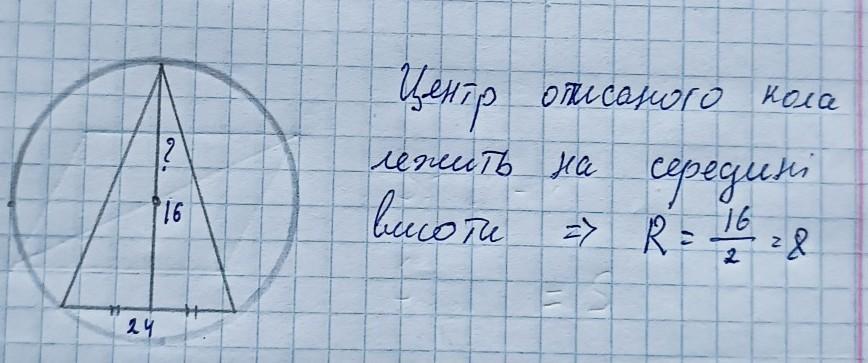 Центр описаного кола
лежить на середині
висоти => R = 16/2 = 8
?
16
24